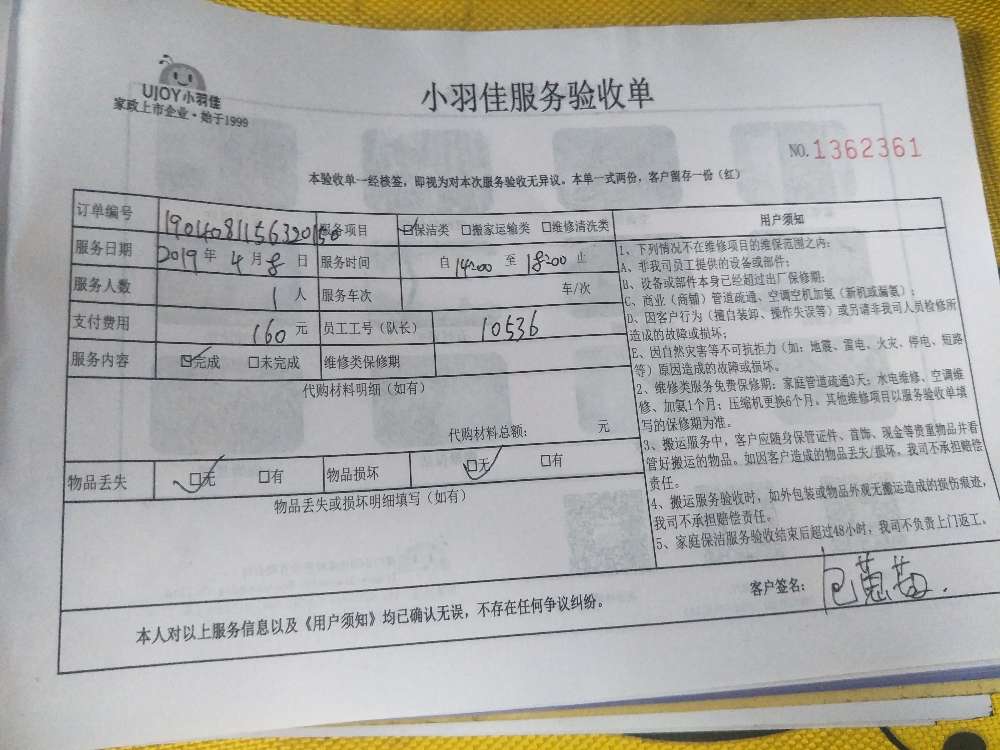 UJOY小羽佳
家政上市企业·始于1999
小羽佳服务验收单
NO.1362361
本验收单一经核签，即视为对本次服务验收无异议。本单一式两份，客户留存一份（红）
订单编号 190408115632015 服务项目 ☑保洁类 □搬家运输类 □维修清洗类
服务日期 2019年4月8日 服务时间 自14:00至18:00止
服务人数 1人 服务车次 车/次
支付费用 160元 员工工号（队长） 10536
服务内容 ☑完成 □未完成 维修类保修期
代购材料明细（如有）
代购材料总额： 元
物品丢失 ☑无 □有 物品损坏 ☑无 □有
物品丢失或损坏明细填写（如有）
用户须知
1、下列情况不在维修项目的维保范围之内：
A、非我司员工提供的设备或部件；
B、设备或部件本身已经超过出厂保修期；
C、商业（商铺）管道疏通、空调空机加氨（新机或漏氨）；
D、因客户行为（擅自装卸、操作失误等）或另请非我司人员检修所
造成的故障或损坏；
E、因自然灾害等不可抗拒力（如：地震、雷电、火灾、停电、短路
等）原因造成的故障或损坏。
2、维修类服务免费保修期：家庭管道疏通3天；水电维修、空调维
修、加氨1个月；压缩机更换6个月。其他维修项目以服务验收单填
写的保修期为准。
3、搬运服务中，客户应随身保管证件、首饰、现金等贵重物品并看
管好搬运的物品。如因客户造成的物品丢失/损坏，我司不承担赔偿
责任。
4、搬运服务验收时，如外包装或物品外观无搬运造成的损伤痕迹，
我司不承担赔偿责任。
5、家庭保洁服务验收结束后超过48小时，我司不负责上门返工。
客户签名：
本人对以上服务信息以及《用户须知》均已确认无误，不存在任何争议纠纷。